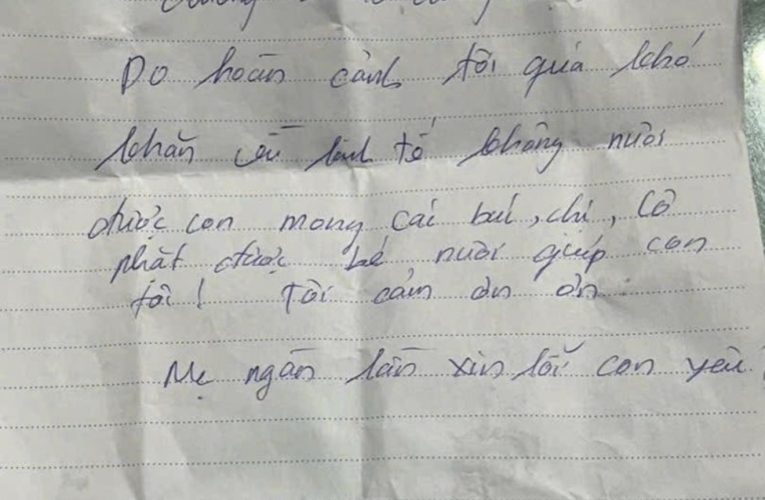 Do hoàn cảnh tôi quá khó
khăn về kinh tế không nuôi
được con mong cái bác, chị, cô
phát được bé nuôi giúp con
tôi! Tôi cảm ơn ơn
Mẹ ngàn lần xin lỗi con yêu